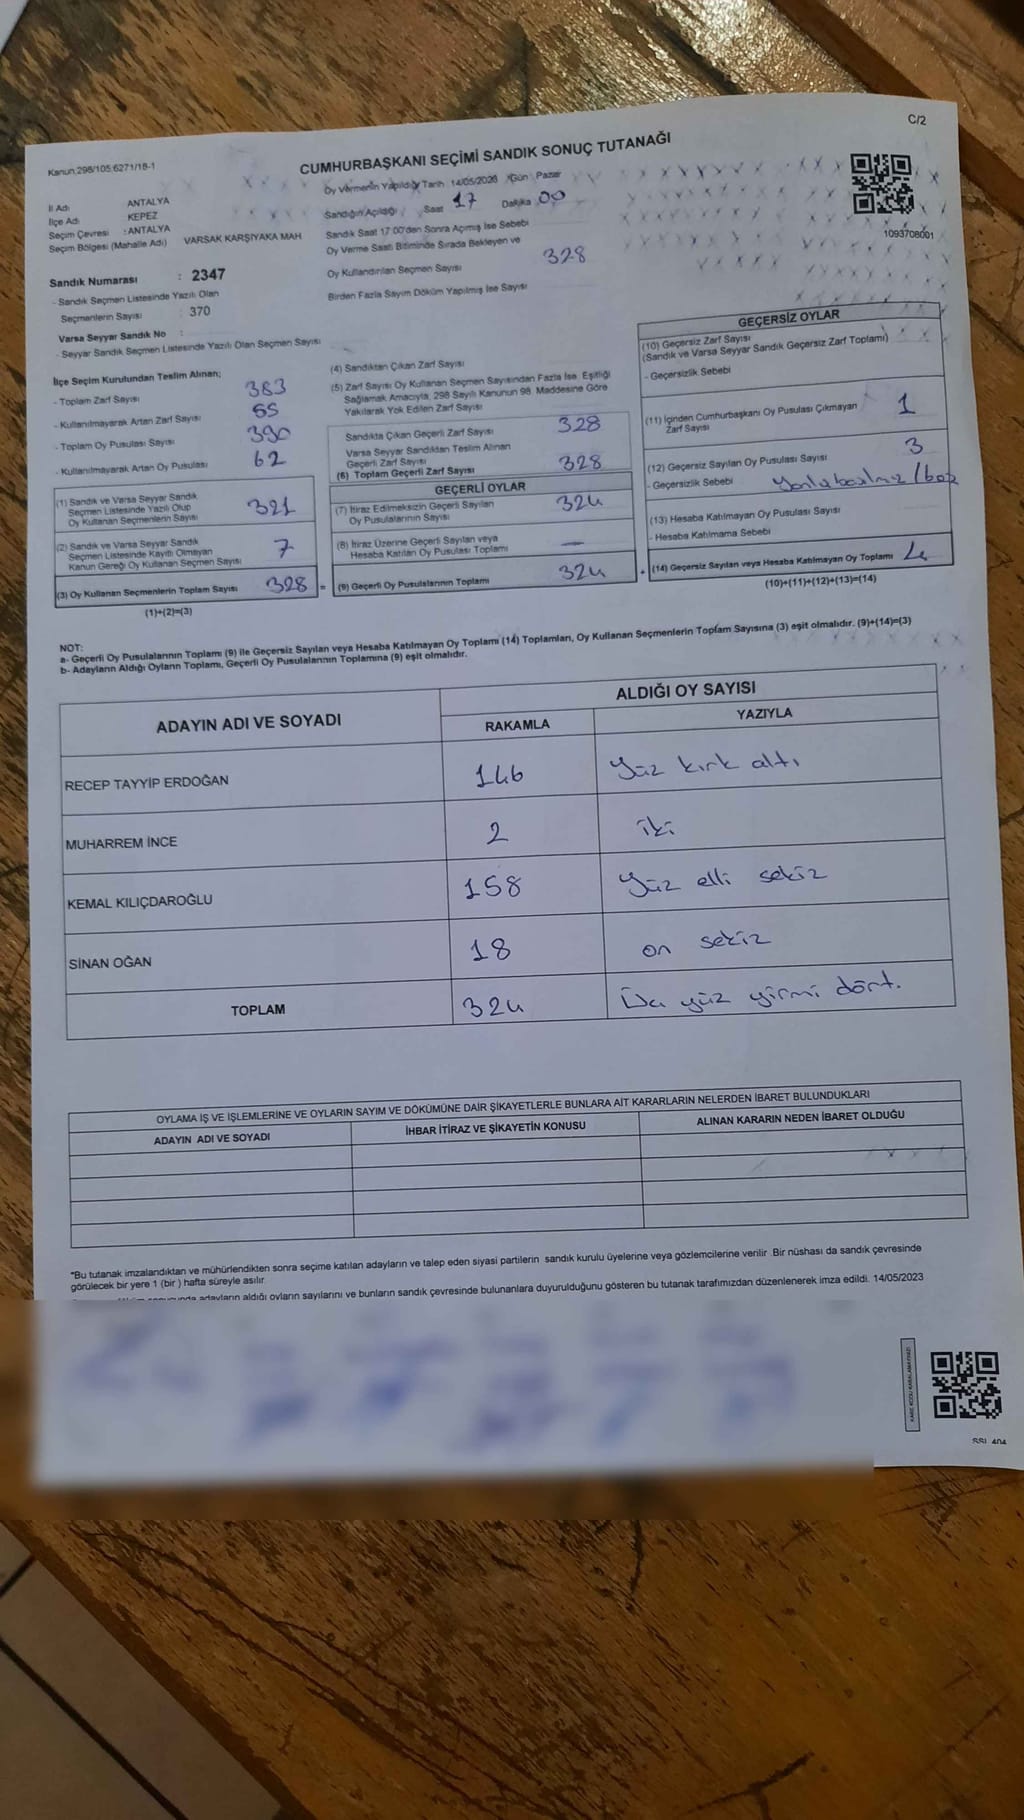 C/2
Kanun:298/105;6271/18-1
CUMHURBAŞKANI SEÇİMİ SANDIK SONUÇ TUTANAĞI
Oy Vermenin Yapıldığı Tarih 14/05/2023 Gün: Pazar
İl Adı ANTALYA
İlçe Adı KEPEZ
Seçim Çevresi : ANTALYA
Seçim Bölgesi (Mahalle Adı) VARSAK KARŞIYAKA MAH
Sandığın Açıldığı Saat 17 Dakika 00
Sandık Saat 17:00'den Sonra Açımış İse Sebebi
Oy Verme Saati Bitiminde Sırada Bekleyen ve
Oy Kullandırılan Seçmen Sayısı 328
Birden Fazla Sayım Döküm Yapılmış İse Sayısı
1093708001
Sandık Numarası : 2347
- Sandık Seçmen Listesinde Yazılı Olan
Seçmenlerin Sayısı : 370
Varsa Seyyar Sandık No :
- Seyyar Sandık Seçmen Listesinde Yazılı Olan Seçmen Sayısı
İlçe Seçim Kurulundan Teslim Alınan;
- Toplam Zarf Sayısı 383
- Kullanılmayarak Artan Zarf Sayısı 55
- Toplam Oy Pusulası Sayısı 390
- Kullanılmayarak Artan Oy Pusulası 62
(1) Sandık ve Varsa Seyyar Sandık
Seçmen Listesinde Yazılı Olup
Oy Kullanan Seçmenlerin Sayısı 321
(2) Sandık ve Varsa Seyyar Sandık
Seçmen Listesinde Kayıtlı Olmayan
Kanun Gereği Oy Kullanan Seçmen Sayısı 7
(3) Oy Kullanan Seçmenlerin Toplam Sayısı 328 =
(1)+(2)=(3)
(4) Sandıktan Çıkan Zarf Sayısı
(5) Zarf Sayısı Oy Kullanan Seçmen Sayısından Fazla İse, Eşitliği
Sağlamak Amacıyla, 298 Sayılı Kanunun 98. Maddesine Göre
Yakılarak Yok Edilen Zarf Sayısı
Sandıkta Çıkan Geçerli Zarf Sayısı 328
Varsa Seyyar Sandıktan Teslim Alınan
Geçerli Zarf Sayısı
(6) Toplam Geçerli Zarf Sayısı 328
GEÇERLİ OYLAR
(7) İtiraz Edilmeksizin Geçerli Sayılan
Oy Pusulalarının Sayısı 324
(8) İtiraz Üzerine Geçerli Sayılan veya
Hesaba Katılan Oy Pusulası Toplamı —
(9) Geçerli Oy Pusulalarının Toplamı 324 +
GEÇERSİZ OYLAR
(10) Geçersiz Zarf Sayısı
(Sandık ve Varsa Seyyar Sandık Geçersiz Zarf Toplamı)
- Geçersizlik Sebebi
(11) İçinden Cumhurbaşkanı Oy Pusulası Çıkmayan
Zarf Sayısı 1
(12) Geçersiz Sayılan Oy Pusulası Sayısı 3
- Geçersizlik Sebebi
(13) Hesaba Katılmayan Oy Pusulası Sayısı
- Hesaba Katılmama Sebebi
(14) Geçersiz Sayılan veya Hesaba Katılmayan Oy Toplamı 4
(10)+(11)+(12)+(13)=(14)
NOT:
a- Geçerli Oy Pusulalarının Toplamı (9) ile Geçersiz Sayılan veya Hesaba Katılmayan Oy Toplamı (14) Toplamları, Oy Kullanan Seçmenlerin Toplam Sayısına (3) eşit olmalıdır. (9)+(14)=(3)
b- Adayların Aldığı Oyların Toplamı, Geçerli Oy Pusulalarının Toplamına (9) eşit olmalıdır.
ADAYIN ADI VE SOYADI
ALDIĞI OY SAYISI
RAKAMLA YAZIYLA
RECEP TAYYİP ERDOĞAN 146 Yüz kırk altı
MUHARREM İNCE 2 iki
KEMAL KILIÇDAROĞLU 158 Yüz elli sekiz
SİNAN OĞAN 18 on sekiz
TOPLAM 324 Üç yüz yirmi dört.
OYLAMA İŞ VE İŞLEMLERİNE VE OYLARIN SAYIM VE DÖKÜMÜNE DAİR ŞİKAYETLERLE BUNLARA AİT KARARLARIN NELERDEN İBARET BULUNDUKLARI
ADAYIN ADI VE SOYADI İHBAR İTİRAZ VE ŞİKAYETİN KONUSU ALINAN KARARIN NEDEN İBARET OLDUĞU
*Bu tutanak imzalandıktan ve mühürlendikten sonra seçime katılan adayların ve talep eden siyasi partilerin sandık kurulu üyelerine veya gözlemcilerine verilir .Bir nüshası da sandık çevresinde
görülecek bir yere 1 (bir ) hafta süreyle asılır.
adayların aldığı oyların sayılarını ve bunların sandık çevresinde bulunanlara duyurulduğunu gösteren bu tutanak tarafımızdan düzenlenerek imza edildi. 14/05/2023